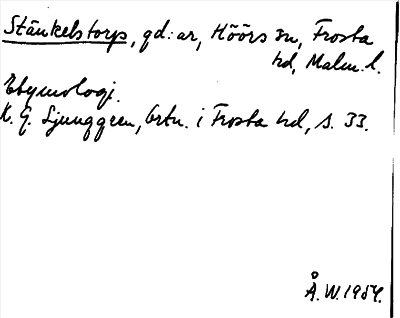 Stänkelstorps, gd:ar, Höörs sn, Frosta
hd, Malm. l.
Etymologi.
K. G. Ljunggren, Ortn. i Frosta hd, s. 33.
Å. W. 1954.